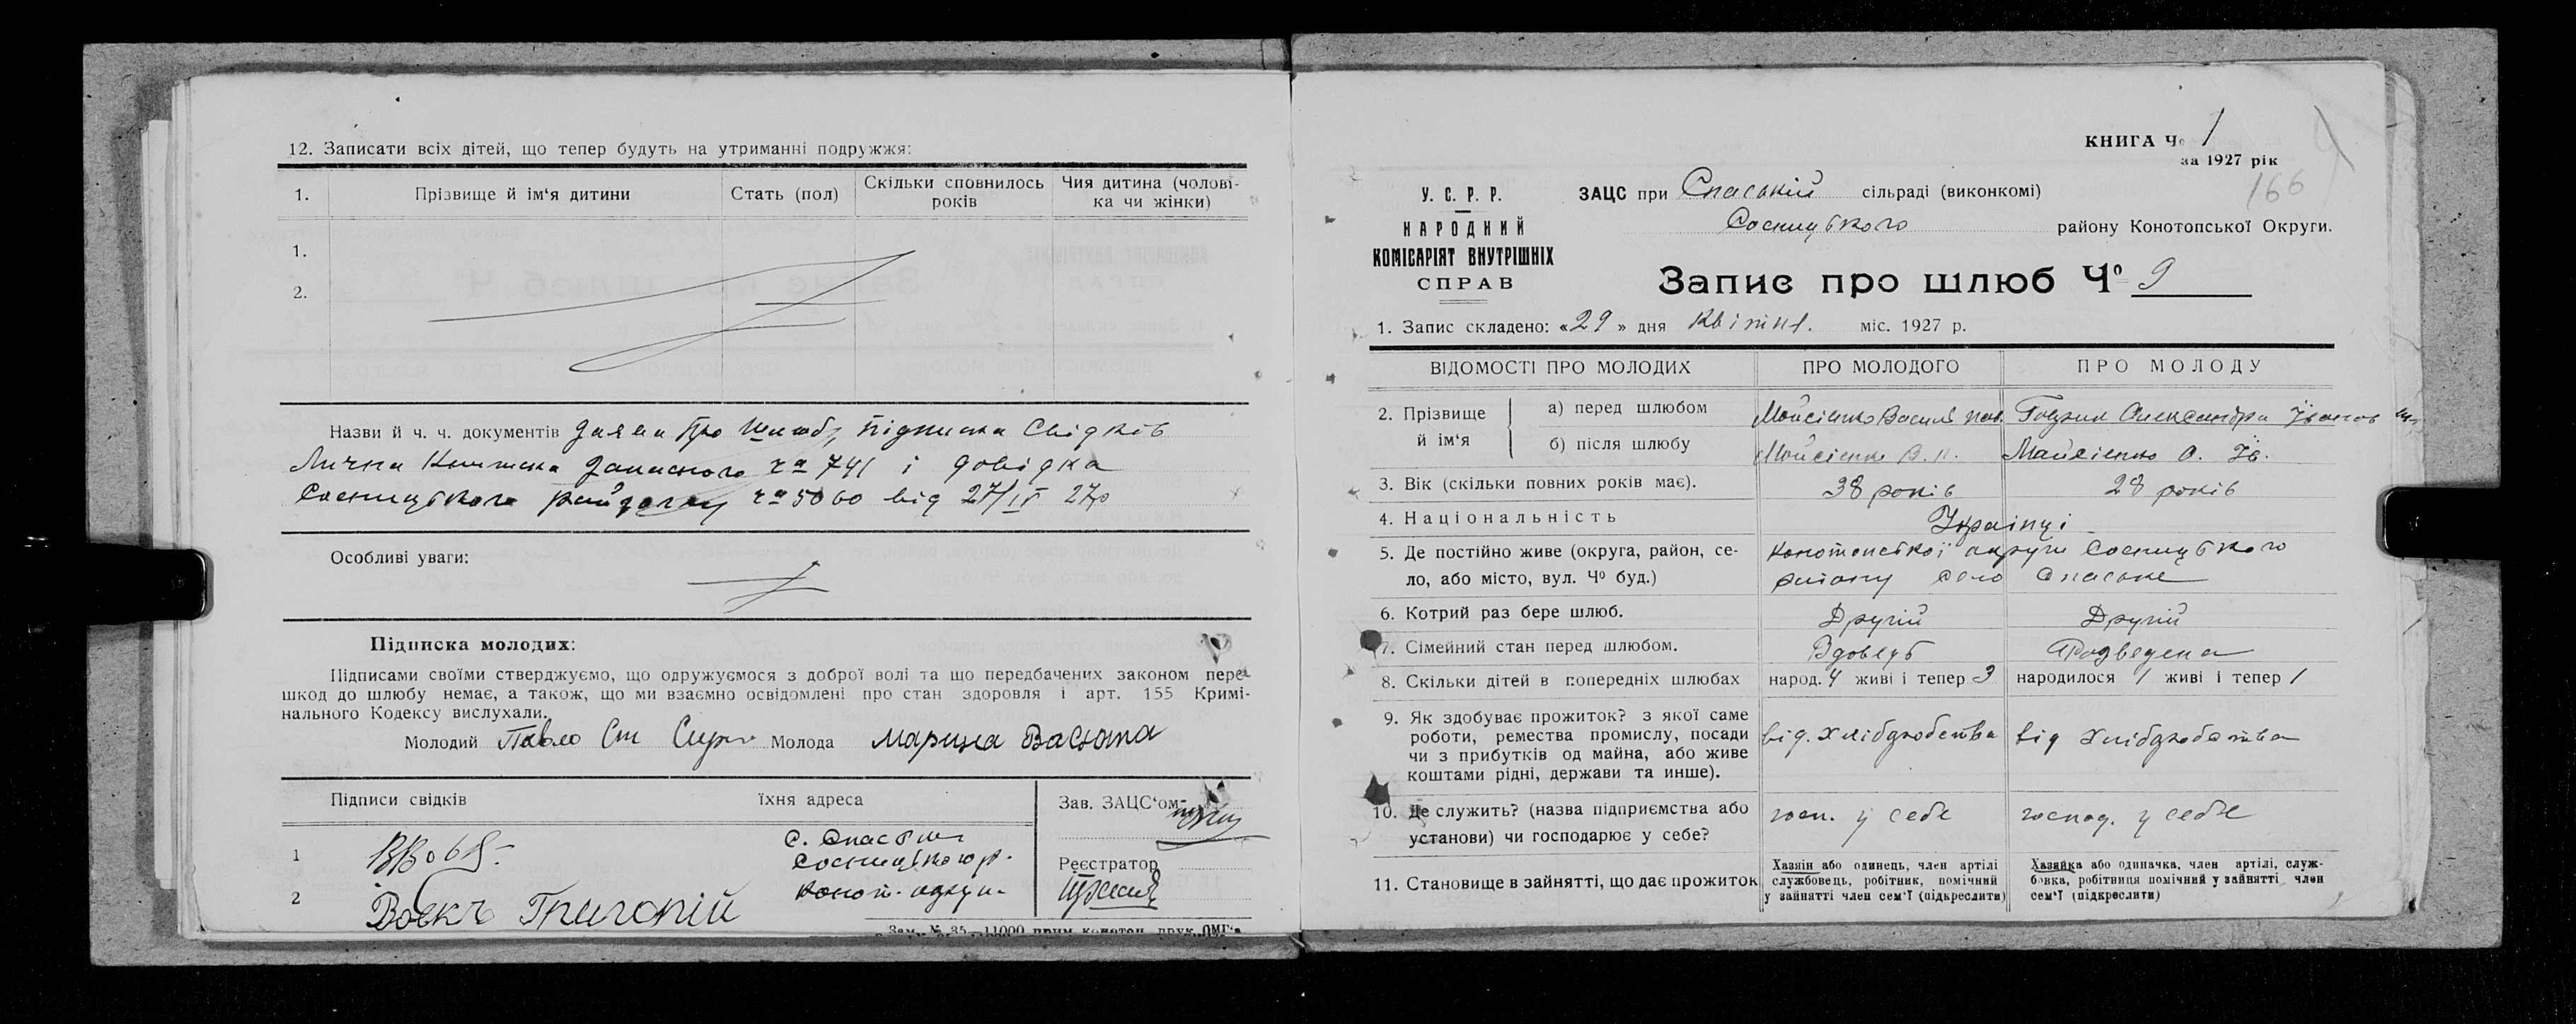 12. Записати всіх дітей, що тепер будуть на утриманні подружжя:
1. Прізвище й ім'я дитини Стать (пол) Скільки сповнилось років Чия дитина (чолові-ка чи жінки)
1.
2.
Назви й ч. ч. документів Заява про шлюб, підписка свідків
Лична Книжка запасного чо 741 і довідка
Сосницького чо 5060 від 27/IV 27р
Особливі уваги:
Підписка молодих:
Підписами своїми стверджуємо, що одружуємося з доброї волі та що передбачених законом пере-
шкод до шлюбу немає, а також, що ми взаємно освідомлені про стан здоровля і арт. 155 Кримі-
нального Кодексу вислухали.
Молодий Павло Молода Марина Васюта
Підписи свідків Їхня адреса Зав. ЗАЦС'ом
1 с. Спаське
Сосницького р. Реєстратор
2 Конот. округи
Григорій
Зам. № 35—11000 прим. конотоп. друк. ОМГ'а
КНИГА Чо 1
за 1927 рік
166
У. С. Р. Р.
НАРОДНИЙ
КОМІСАРІЯТ ВНУТРІШНІХ
СПРАВ
ЗАЦС при Спаській сільраді (виконкомі)
Сосницького району Конотопської Округи.
Запис про шлюб Чо 9
1. Запис складено: «29» дня Квітня. міс. 1927 р.
ВІДОМОСТІ ПРО МОЛОДИХ ПРО МОЛОДОГО ПРО МОЛОДУ
2. Прізвище й ім'я а) перед шлюбом Мойсіенко Василь Пав. Олександра Іванов
б) після шлюбу Мойсіенко В. П. Мойсіенко О. Ів.
3. Вік (скільки повних років має). 38 років 28 років
4. Національність Українці
5. Де постійно живе (округа, район, се- Конотопської округи Сосницького
ло, або місто, вул. Чо буд.) району село Спаське
6. Котрий раз бере шлюб. Другий Другий
7. Сімейний стан перед шлюбом. Вдовець Розведена
8. Скільки дітей в попередніх шлюбах народ. 4 живі і тепер 3 народилося 1 живі і тепер 1
9. Як здобуває прожиток? з якої саме
роботи, ремества промислу, посади від. Хліборобства від Хліборобства
чи з прибутків од майна, або живе
коштами рідні, держави та инше).
10. Де служить? (назва підприємства або госп. у себе господ. у себе
установи) чи господарює у себе?
11. Становище в зайнятті, що дає прожиток
Хазяін або одинець, член артілі
службовець, робітник, помічний
у зайнятті член сем'ї (підкреслити)
Хазяйка або одиначка, член артілі, служ-
бовка, робітниця помічний у зайнятті член
сем'ї (підкреслити)